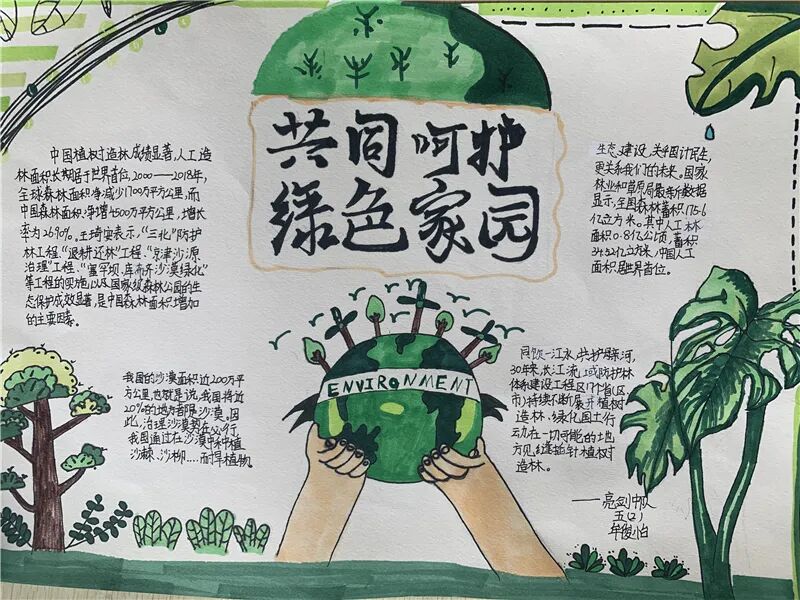 共同呵护
绿色家园
中国植树造林成绩显著,人工造
林面积长期居于世界首位,2000——2018年,
全球森林面积净减少1700万平方公里,而
中国森林面积净增4500万平方公里,增长
率为26.90%。王琦安表示,“三北”防护
林工程、“退耕还林”工程、“京津沙源
治理”工程、“塞罕坝、库布齐沙漠绿化”
等工程的实施,以及国家级森林公园的生
态保护成效显著,是中国森林面积增加
的主要因素。
我国的沙漠面积近200万平
方公里,也就是说,我国将近
20%的地方都是沙漠,因
此,治理沙漠势在必行。
我国通过在沙漠中种植
沙棘、沙柳....耐旱植物。
ENVIRONMENT
生态建设,关乎国计民生,
更关系我们的未来。国家
林业和草原局最新数据
显示,全国森林蓄积175.6
亿立方米。其中人工林
面积0.8亿公顷,蓄积
34.52亿立方米,中国人工
面积居世界首位。
同饮一江水,共护母亲河,
30年来,长江流域防护林
体系建设工程区17个省(区
市)持续不断展开植树
造林、绿化国土行
动在一切可能的地
方见缝插针植树
造林。
——亮剑中队
五(2)
牟俊